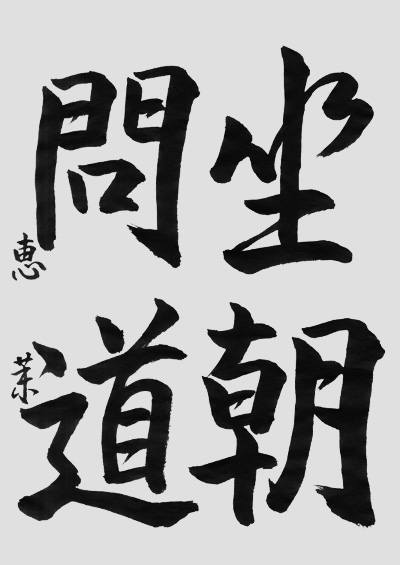 坐朝
問道
恵茉